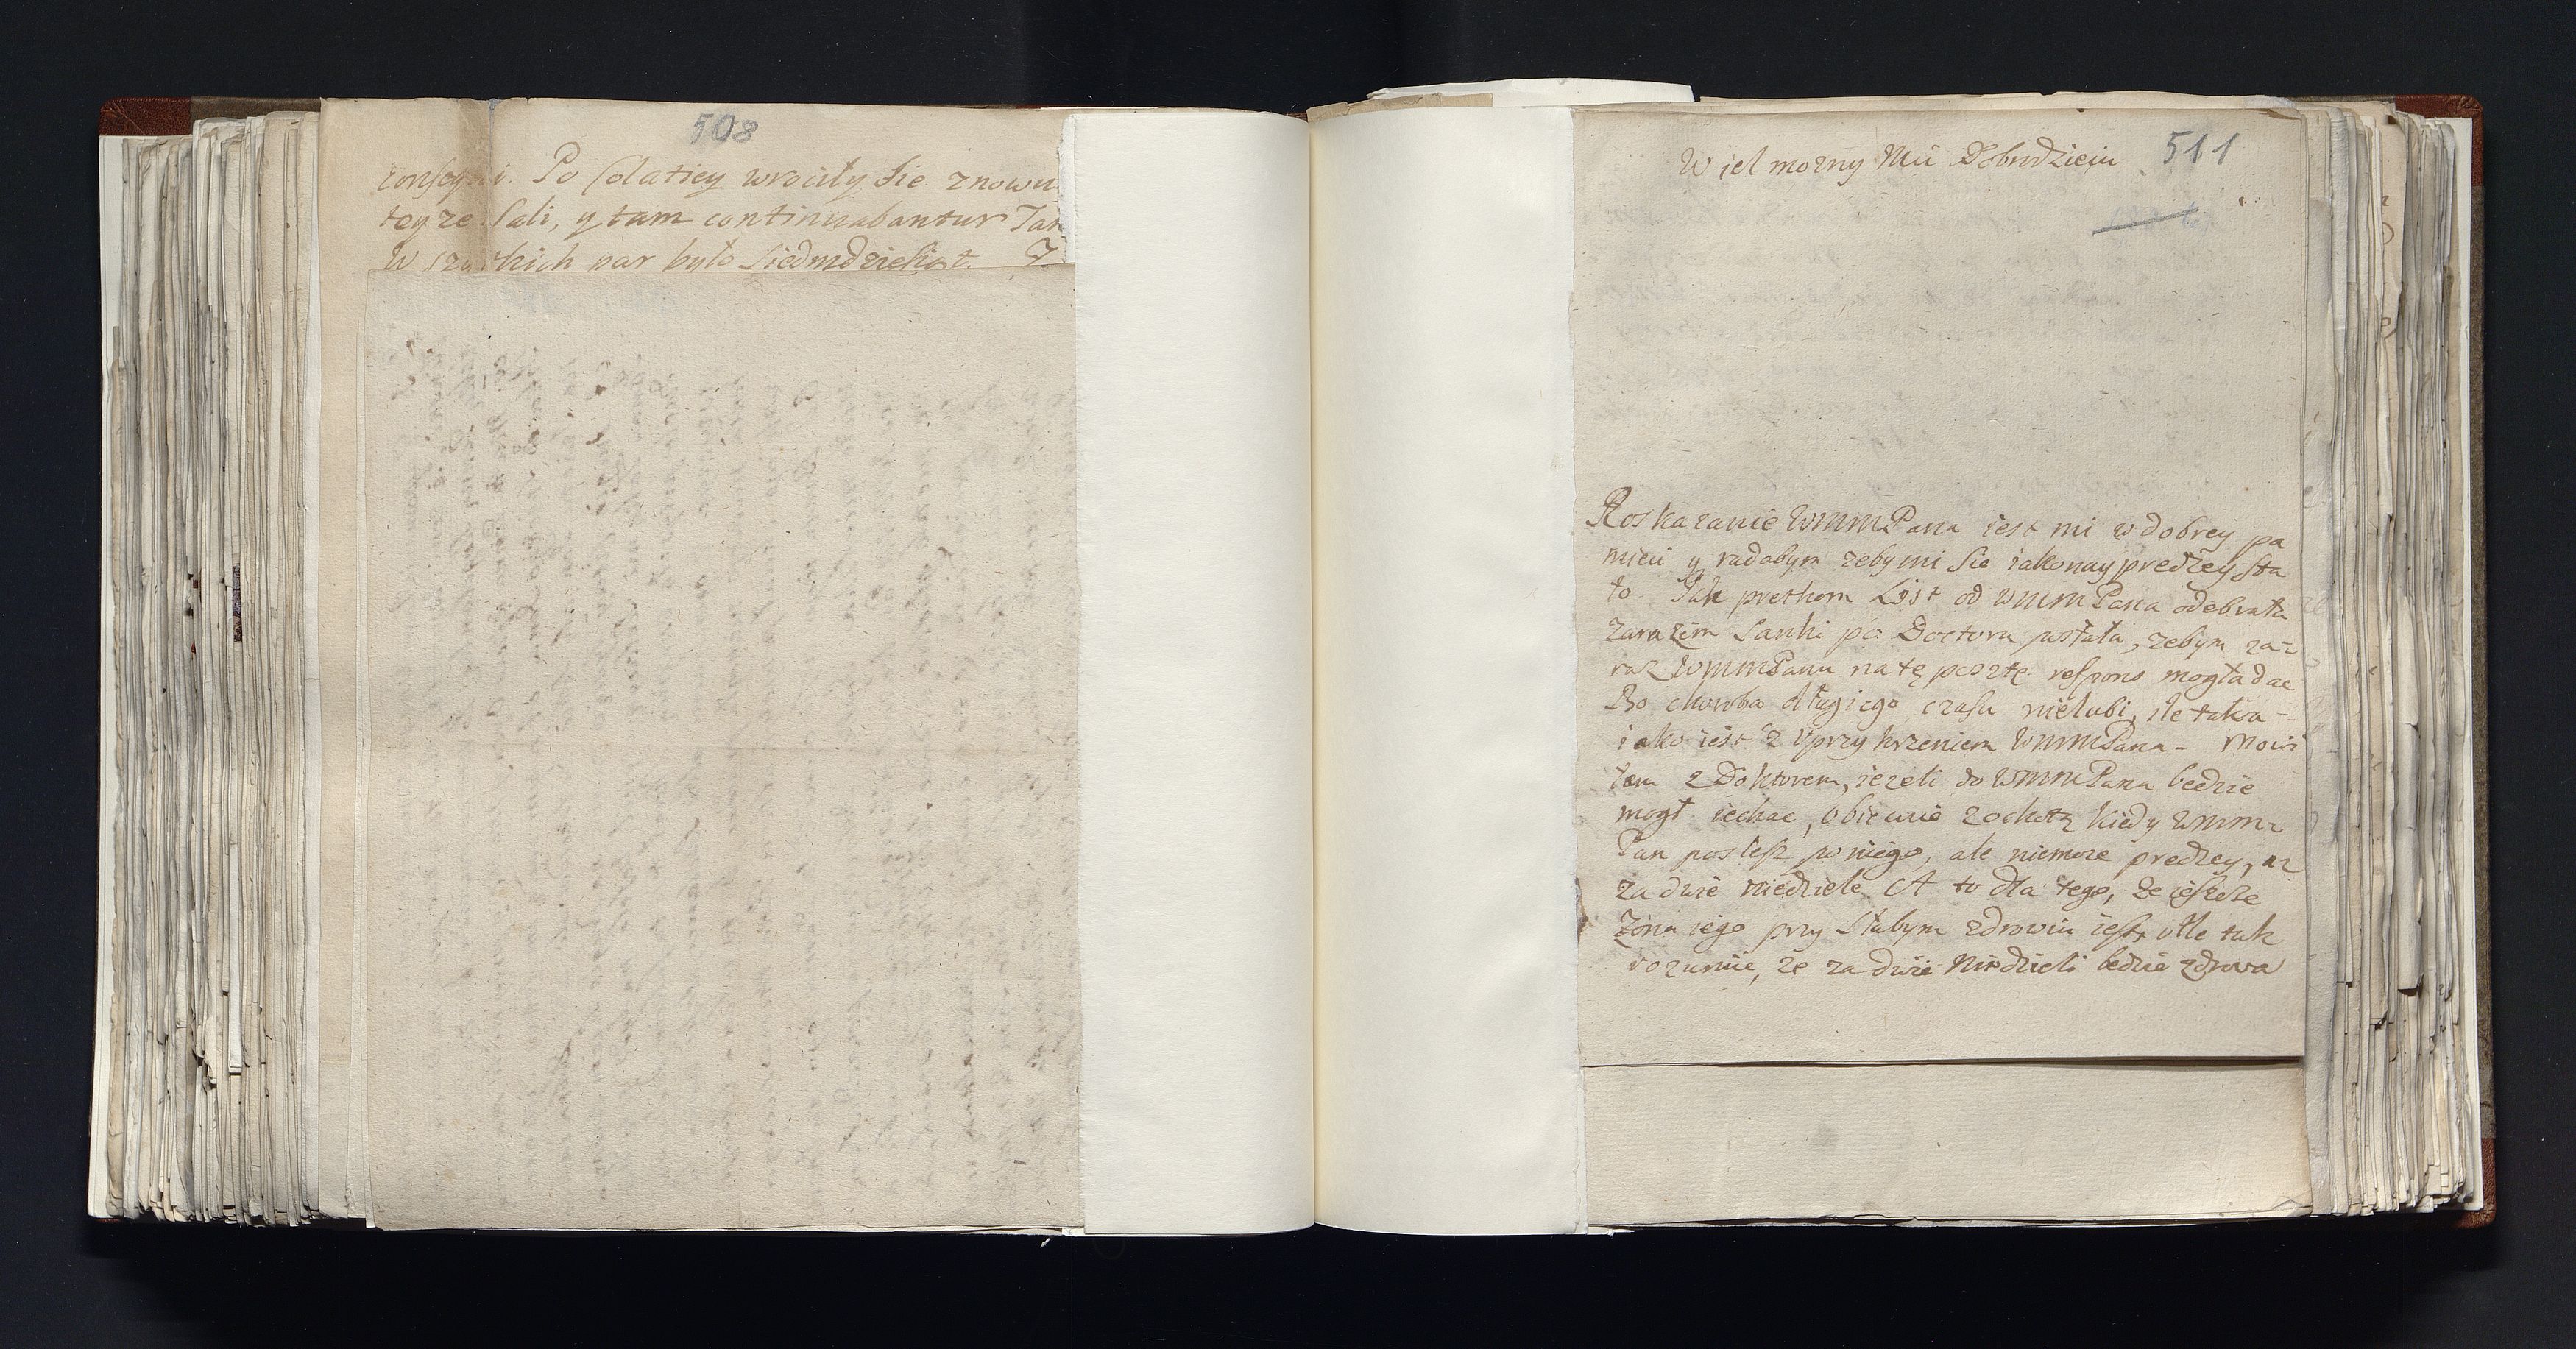 508
Po Colatiey wrociły Sie znowu
teyze Sali, y tam continuabantur Tan
W szystkich par było Siedmdziesiat.
511
Wielmozny Mći Dobrodzieiu
Roskazanie WMMPana iest mi w dobrey pa
mieci y radabym zeby mi Sie iakonaypredzey sta
ło. Jak prethem List od WMMPana odebrała
zarazem Sanki po Doctora posłała, zebym za-
raz WMMPanu na tę pocztę respons mogła dac
Bo choroba długiego czasu nielubi, ile taka-
iako iest z Vprzykrzeniem WMMPana- Mowi
łam z Doktorem, iezeli do WMMPana bedzie
mogł iechac, obiecuie z ochotą kiedy WMM-
Pan poslesz po niego, ale niemoze predzey, az
za dwie niedziele A to dla tego, ze ieszcze
Zona iego przy Słabym zdrowiu iest, Ale tak
rozumie, ze za dwie Niedzieli bedzie zdrowa